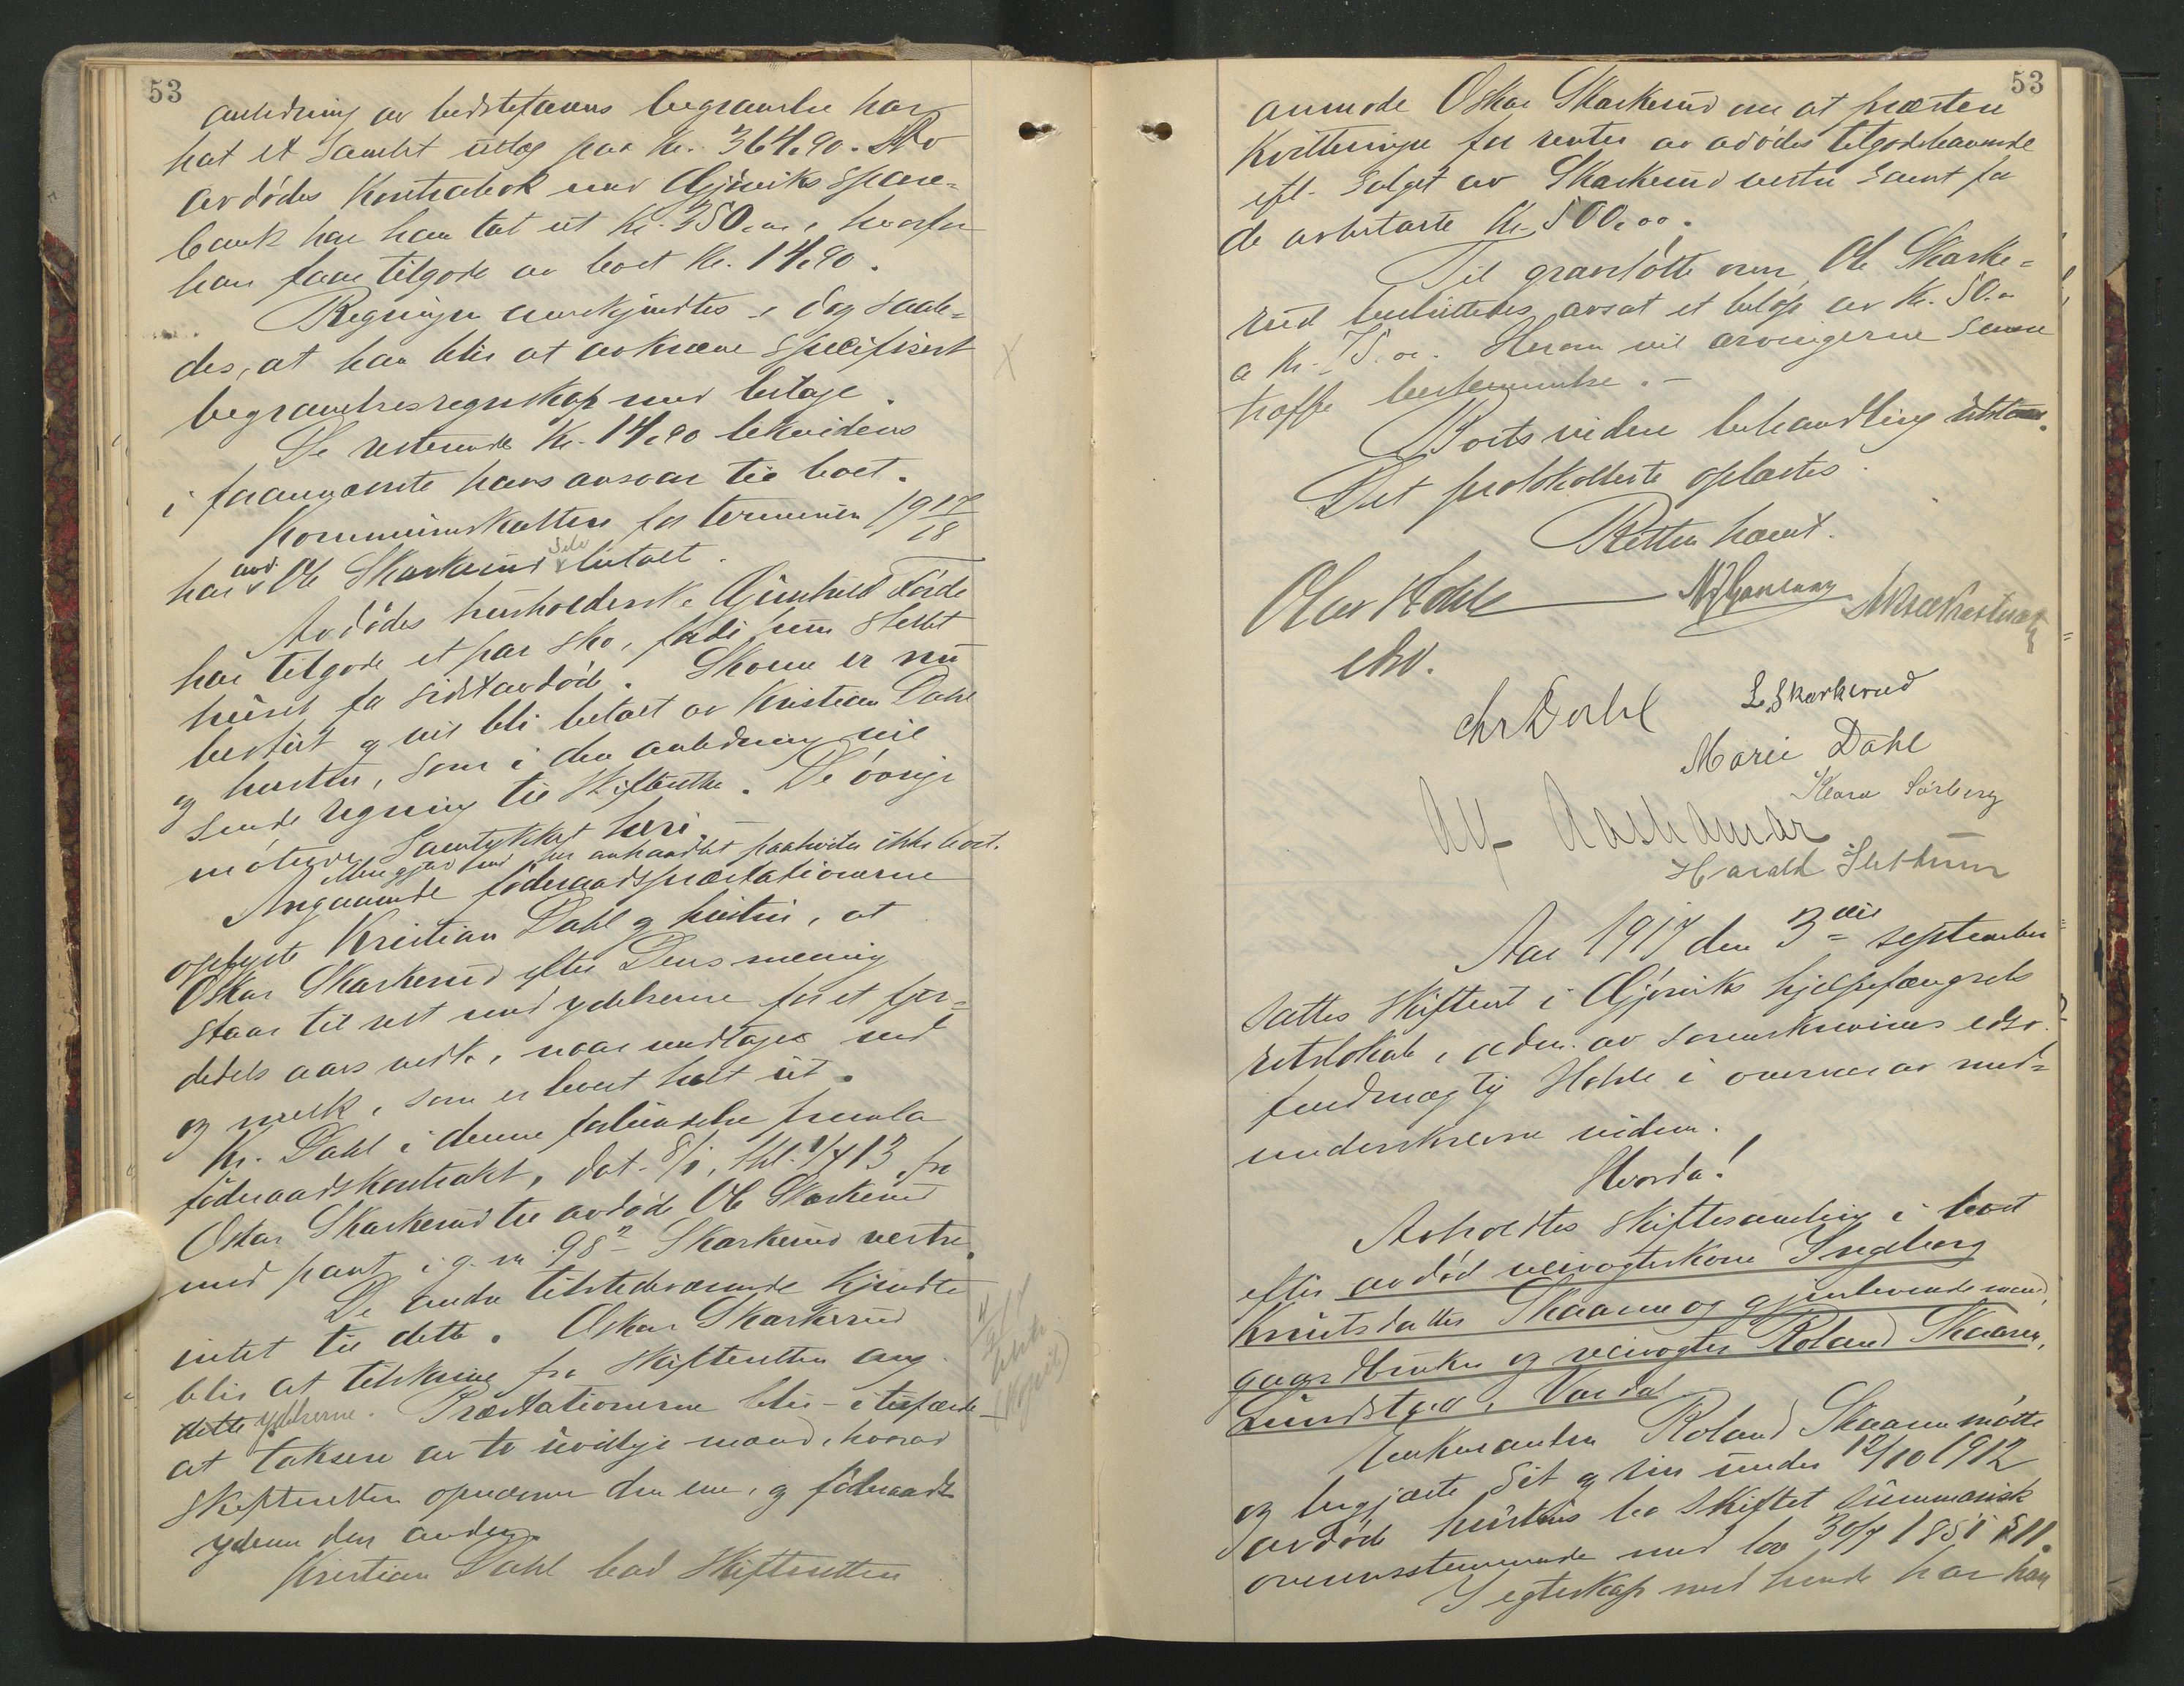 53
anledning av bedstefarens begravelse har
hat et samlet utlæg paa kr. 364,90. Av
avdødes kontrabok med Gjøviks Spare-
bank har han tat ut kr. 350,00, hvorfor
han faar tilgode av boet kr. 14,90.
Regningen anerkjendtes i dag saale-
des, at han blir at avkræve specifisert
begravelsesregnskap med bilage.
De resterende kr. 14,90 likvideres
i faannævnte hans ansvar til boet.
Kommuneskatten for terminen 1917/18
har avd. Ole Skarkerud selv betalt.
Avdødes husholderske Gunhild Lørde
har tilgode et par sko, fordi hun stellet
huset for sidstavdøde. Skoene er nu
bestilt og vil bli betalt av Kristian Dahl
og hustru, som i den anledning vil
sende regning til skifteretten. De øvrige
møtende samtykket heri.
Angaaende føderaadspræstationerne
oplyste Kristian Dahl og hustru, at
Oskar Skarkerud efter Deres mening
staar til rest med ydelserne for et fjer-
dedels aars vedk., naar undtages ved
og melk, som er levert helt ut.
Kr. Dahl i denne forbindelse fremla
føderaadskontrakt, dat. 8/1, thl. 1/4 13 fra
Oskar Skarkerud til avdøde Ole Skarkerud
med pant i g. nr. 98 Skarkerud vestre.
De andre tilstedeværende kjendte
intet til dette. Oskar Skarkerud
blir at tilskrive fra skifteretten ang.
dette ydelserne. Præstationerne blir i tilfælde
at taksere av to uvillige mænd, hvorav
skifteretten opnævner den ene, og føderaads-
yderen den anden.
Kristian Dahl bad skifteretten
53
anmode Oskar Skarkerud om at præstere
kvitteringer for renter av avdødes tilgodehavende
eft. salget av Skarkerud vestre samt for
de avbetalte kr. 500,00.
Til gravstøtte over Ole Skarke-
rud besluttedes avsat et beløp av kr. 50,00
a kr. 75,00. Herom vil arvingerne senere
træffe bestemmelse.
Boets videre behandling utstaar.
Det protokollerte oplæstes.
Retten hævet.
Olav Hohle
chr Dahl
L. Skarkerud
Marie Dahl
Klara Sørberg
Alf Aashamar
Harald
Aar 1917 den 3die september
sattes skifteret i Gjøviks hjelpefængsels
retslokale, adm. av sorenskriverens edsv.
fuldmægtig Hohle i overvær av med-
underskrevne vidner.
Hvorda!
Avholdtes skiftesamling i boet
efter avdød veivogterkone Ingeborg
Knutsdatter Skaaren og gjenlevende mand,
gaardbruker og veivogter Roland Skaaren,
Lundstad, Vardal
Enkemanden Roland Skaaren møtte
og begjærte sit og sin under 12/10 1912
avdøde hustrus bo skiftet summarisk
overensstemmende med lov 30/7 1851 § 11.
I egteskap med hende har han